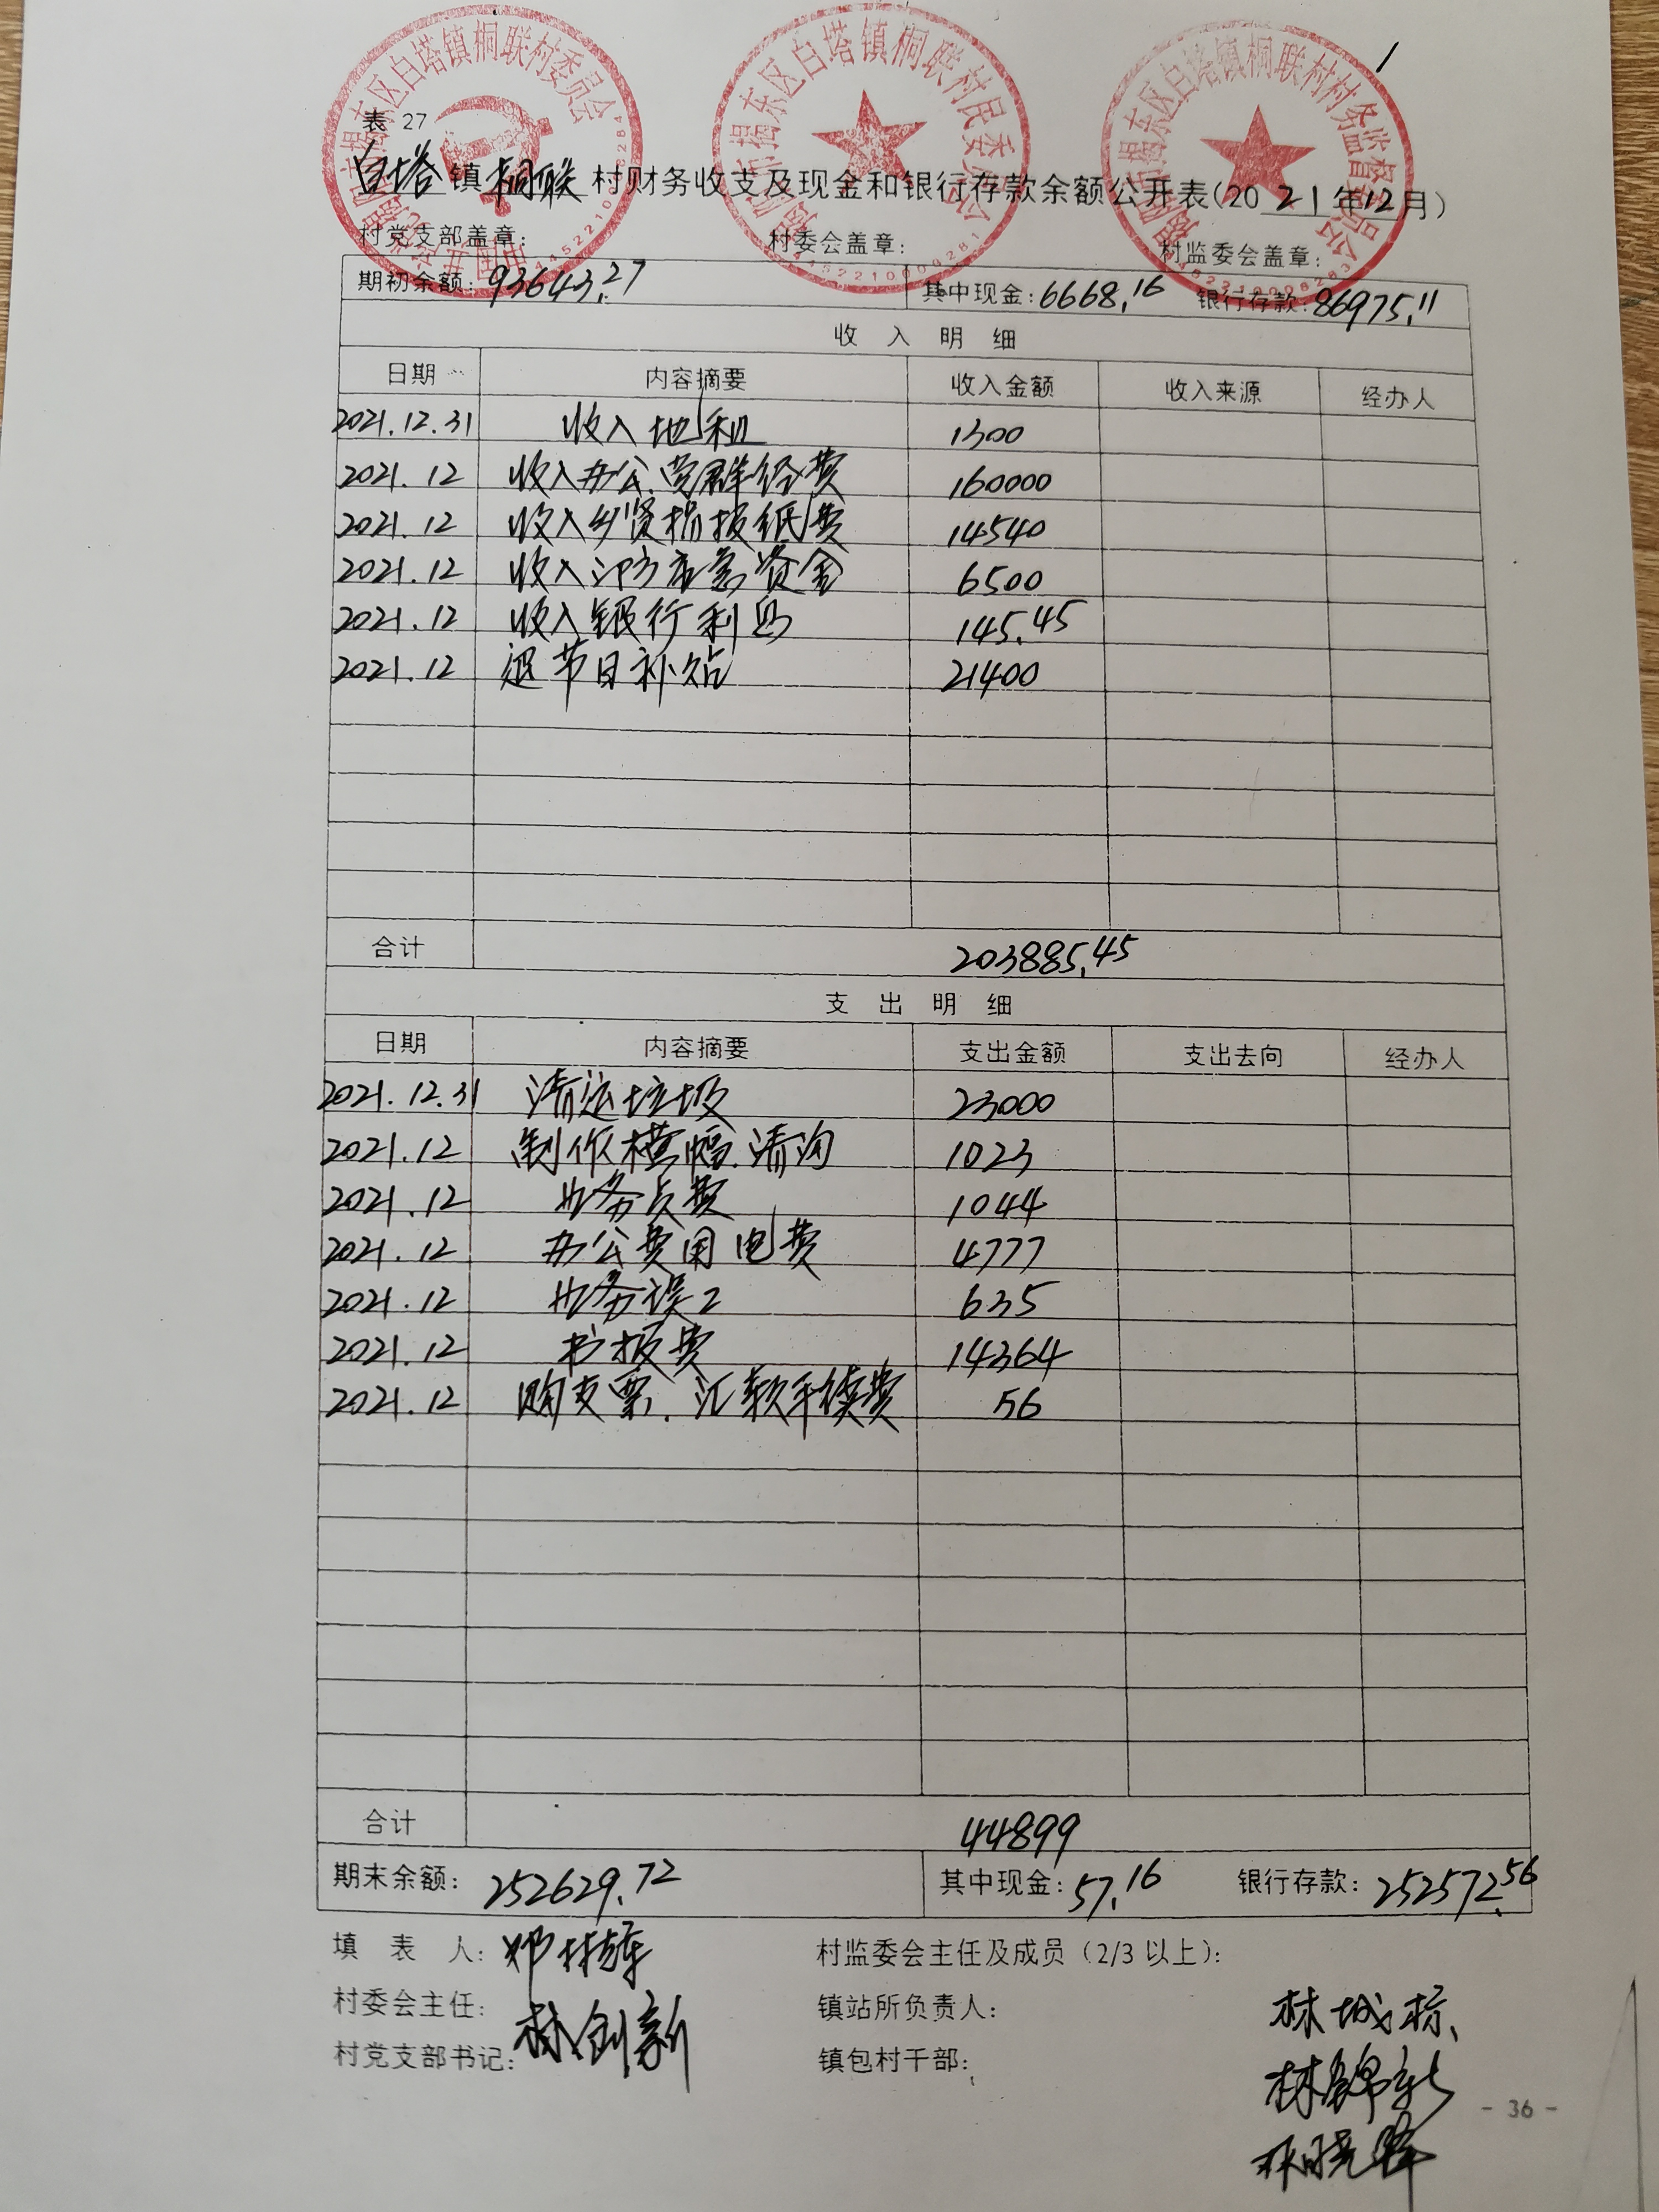 表 27
白塔镇桐联村财务收支及现金和银行存款余额公开表(2021年12月)
村党支部盖章: 村委会盖章: 村监委会盖章:
期初余额: 93643.27 其中现金: 6668.16 银行存款: 86975.11
收 入 明 细
日期 内容摘要 收入金额 收入来源 经办人
2021.12.31 收入地租 1300
2021.12 收入办公.党群经费 160000
2021.12 收入乡贤捐报纸费 14540
2021.12 收入 应急资金 6500
2021.12 收入银行利息 145.45
2021.12 退节日补贴 21400
合计 203885.45
支 出 明 细
日期 内容摘要 支出金额 支出去向 经办人
2021.12.31 清运垃圾 23000
2021.12 制作横幅.清沟 1023
2021.12 业务员费 1044
2021.12 办公费用电费 4777
2021.12 业务误工 635
2021.12 书报费 14364
2021.12 购支票.汇款手续费 56
合计 44899
期末余额: 252629.72 其中现金: 57.16 银行存款: 252572.56
填 表 人: 村监委会主任及成员(2/3以上):
村委会主任: 镇站所负责人: 林城标
村党支部书记: 林创新 镇包村干部:
林锦彬
林晓
- 36 -